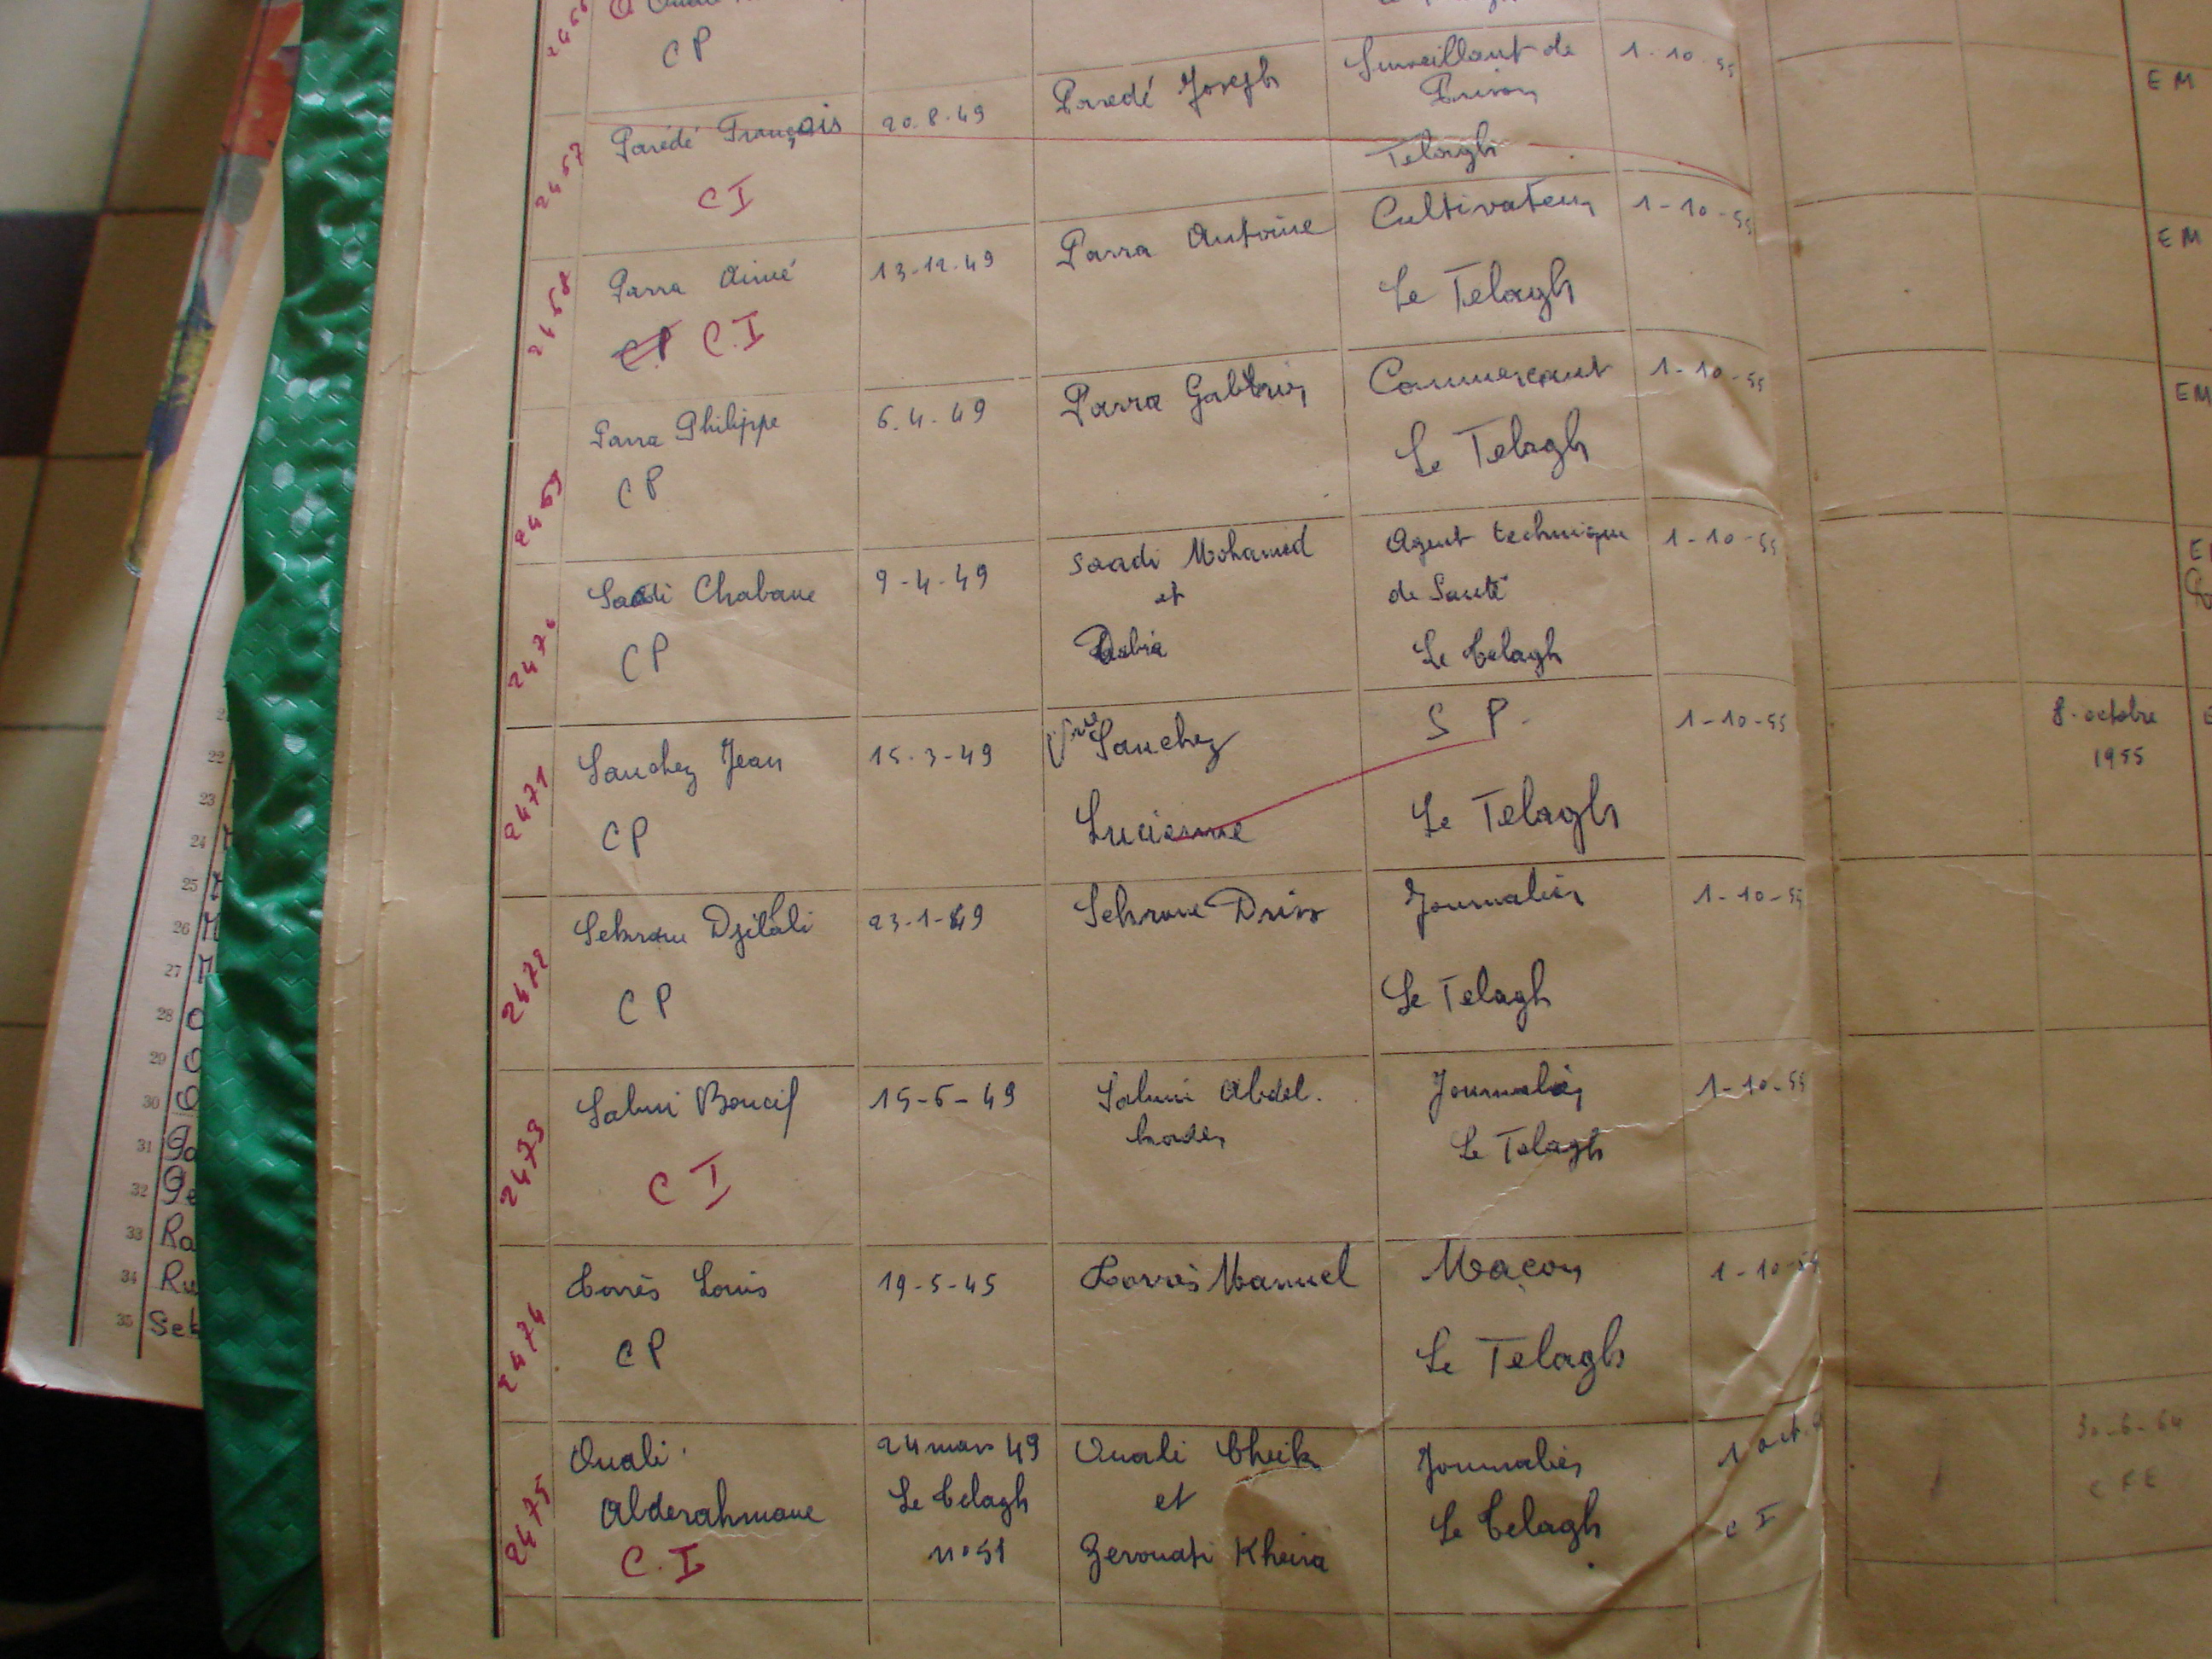 CP
2467 Parédé Français 20.8.49 Paredé Joseph Surveillant de 1-10-55 EM
Prison
Telagh
CI
2468 Parra Aimé 13-12-49 Parra Antoine Cultivateur 1-10-55 EM
CP C.I
Le Telagh
2469 Parra Philippe 6.4.49 Parra Commerçant 1-10-55 EM
CP
Le Telagh
2470 Saadi Chabane 9-4-49 Saadi Mohamed Agent technique 1-10-55
et de Santé
CP Le Telagh
2471 Sanchez Jean 15-3-49 Vve Sanchez S P. 1-10-55 8-octobre
1955
CP Lucienne Le Telagh
2472 Djilali 23-1-49 Driss Journalier 1-10-55
CP Le Telagh
2473 Salmi Boucif 15-6-49 Salmi Abdel. Journalier 1-10-55
kader Le Telagh
C I
2474 Torrès Louis 19-5-45 Torrès Manuel Maçon 1-10-55
CP Le Telagh
2475 Ouali 24 mars 49 Ouali Cheik Journalier 1 oct. 30-6-64
Abderahmane Le Telagh et Le Telagh C I CFE
C.I n°51 Zerouati Kheira
22
23
24
25
26
27
28
29
30
31
32
33 Ra
34 Ru
35 Seb